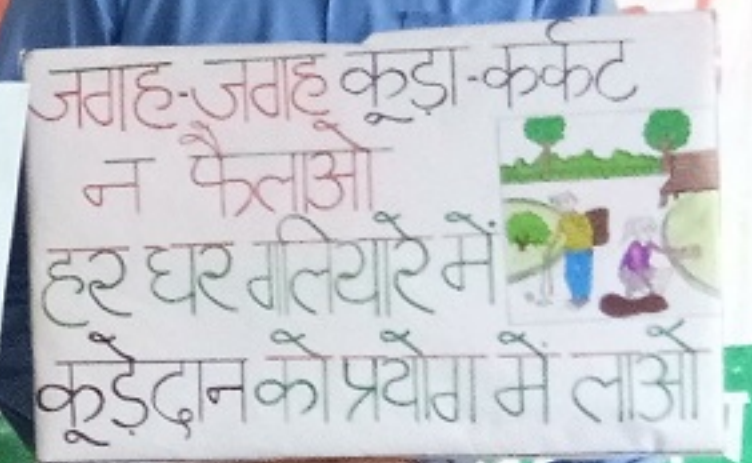 जगह-जगह कूड़ा-कर्कट
न फैलाओ
हर घर गलियारे में
कूड़ेदान को प्रयोग में लाओ